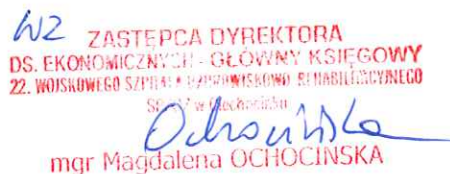 WZ ZASTĘPCA DYREKTORA
DS. EKONOMICZNYCH - GŁÓWNY KSIĘGOWY
22. WOJSKOWEGO SZPITALA UZDROWISKOWO REHABILITACYJNEGO
w Ciechocinku
Ochocińska
mgr Magdalena OCHOCIŃSKA